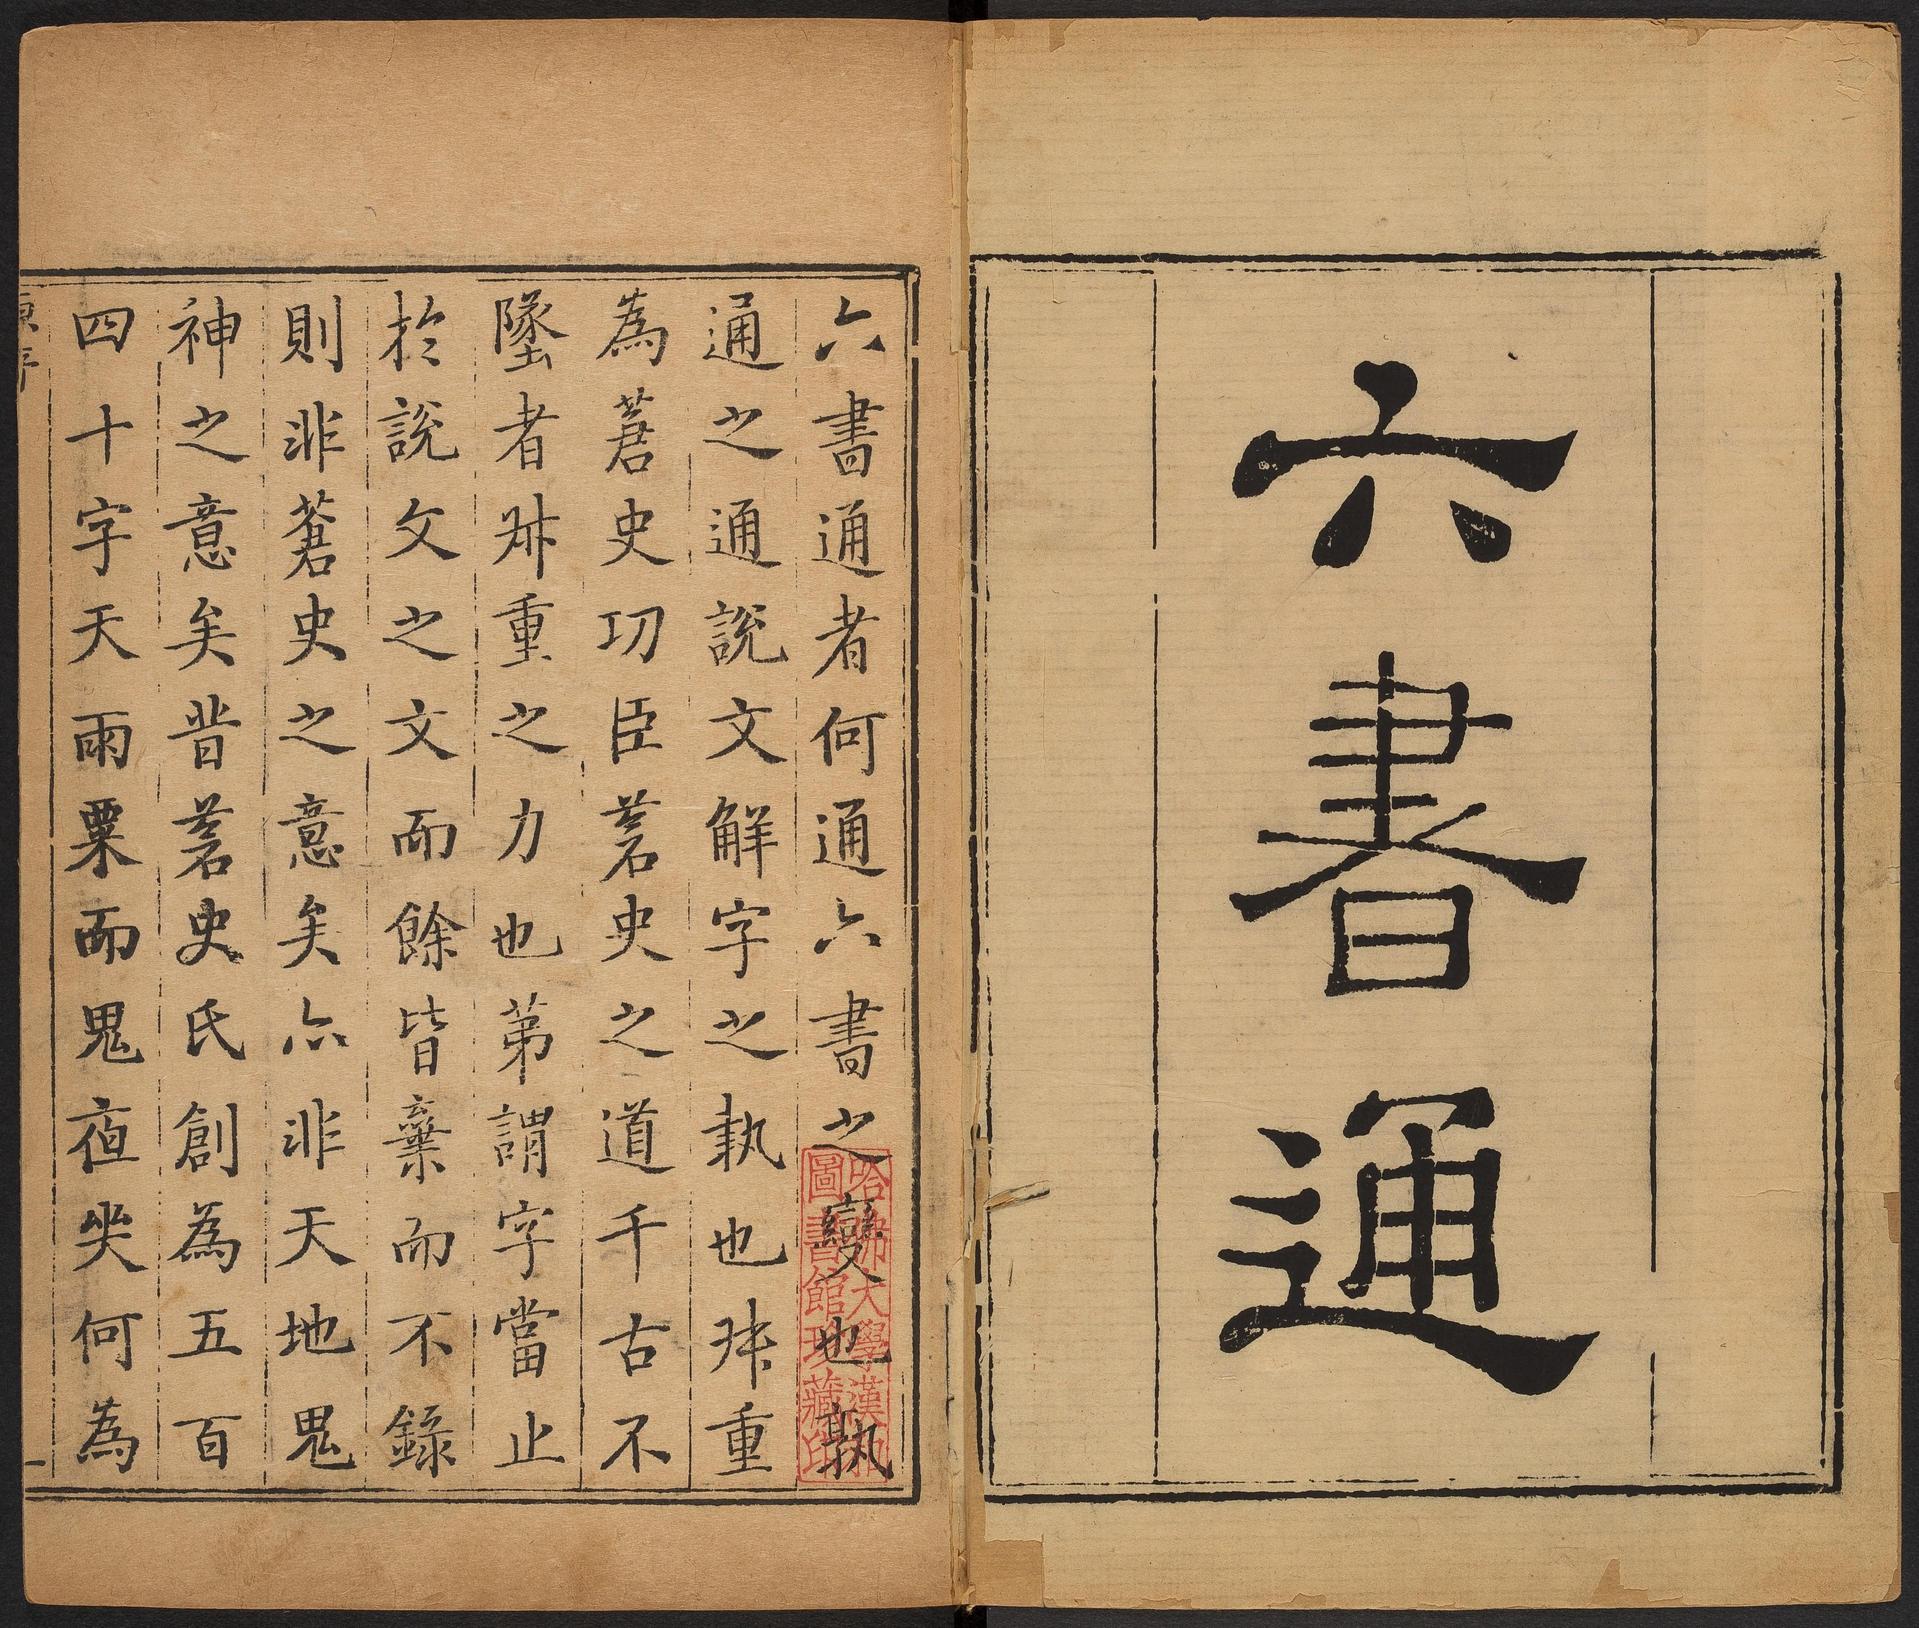 六書通
六書通者何通六書之變也孰
通之通說文解字之執也叔重
為蒼史功臣蒼史之道千古不
墜者叔重之力也第謂字當止
於說文之文而餘皆棄而不錄
則非蒼史之意矣亦非天地鬼
神之意矣昔蒼史氏創為五百
四十字天雨粟而鬼夜哭何為
原序
一
哈佛大學漢和
圖書館珍藏印